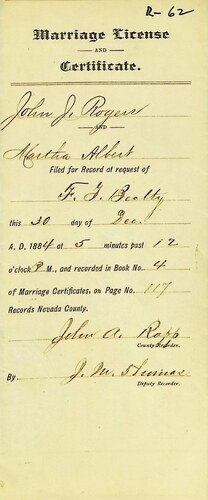 R-62
Marriage License
AND
Certificate.
John J. Rogers
AND
Martha Albert
Filed for Record at request of
F. J. Beatty
this 30 day of Dec.
A. D. 1884 at 5 minutes past 12
o'clock P M., and recorded in Book No. 4
of Marriage Certificates, on Page No. 117
Records Nevada County.
John A. Rapp
County Recorder.
By J. M.
Deputy Recorder.